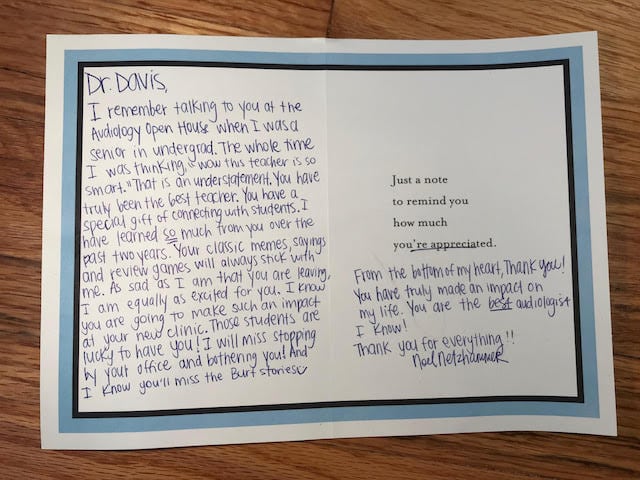 Dr. Davis,
I remember talking to you at the
Audiology Open House when I was a
senior in undergrad. The whole time
I was thinking, "wow this teacher is so
smart." That is an understatement. You have
truly been the best teacher. You have a
special gift of connecting with students. I
have learned so much from you over the
past two years. Your classic memes, sayings
and review games will always stick with
me. As sad as I am that you are leaving,
I am equally as excited for you. I know
you are going to make such an impact
at your new clinic. Those students are
lucky to have you! I will miss stopping
by your office and bothering you! And
I know you'll miss the Burt stories
Just a note
to remind you
how much
you're appreciated.
From the bottom of my heart, Thank you!
You have truly made an impact on
my life. You are the best audiologist
I know!
Thank you for everything!!
Noel Netzhammer